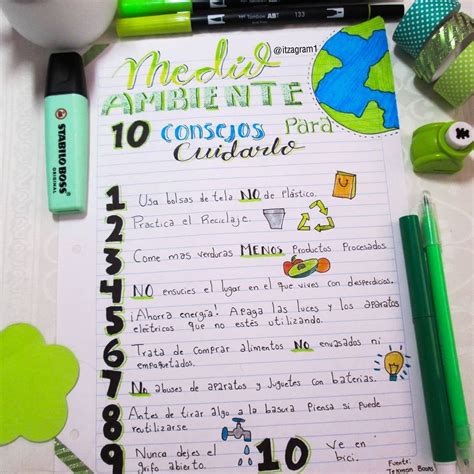 @itzagram1
Medio
AMBIENTE
10 Consejos Para
Cuidarlo
1 Usa bolsas de tela NO de Plástico.
2 Practica el Reciclaje.
3 Come mas verduras MENOS Productos Procesados
4 NO ensucies el lugar en el que vives con desperdicios.
5 ¡Ahorra energía! Apaga las luces y los aparatos
eléctricos que no estés utilizando.
6 Trata de comprar alimentos NO envasados ni
empaquetados.
7 No abuses de aparatos y Juguetes con baterías.
8 Antes de tirar algo a la basura Piensa si puede
reutilizarse.
9 Nunca dejes el
grifo abierto.
10 Ve en
bici.
Fuente:
STABILO BOSS
ORIGINAL
Tombow ABT
133